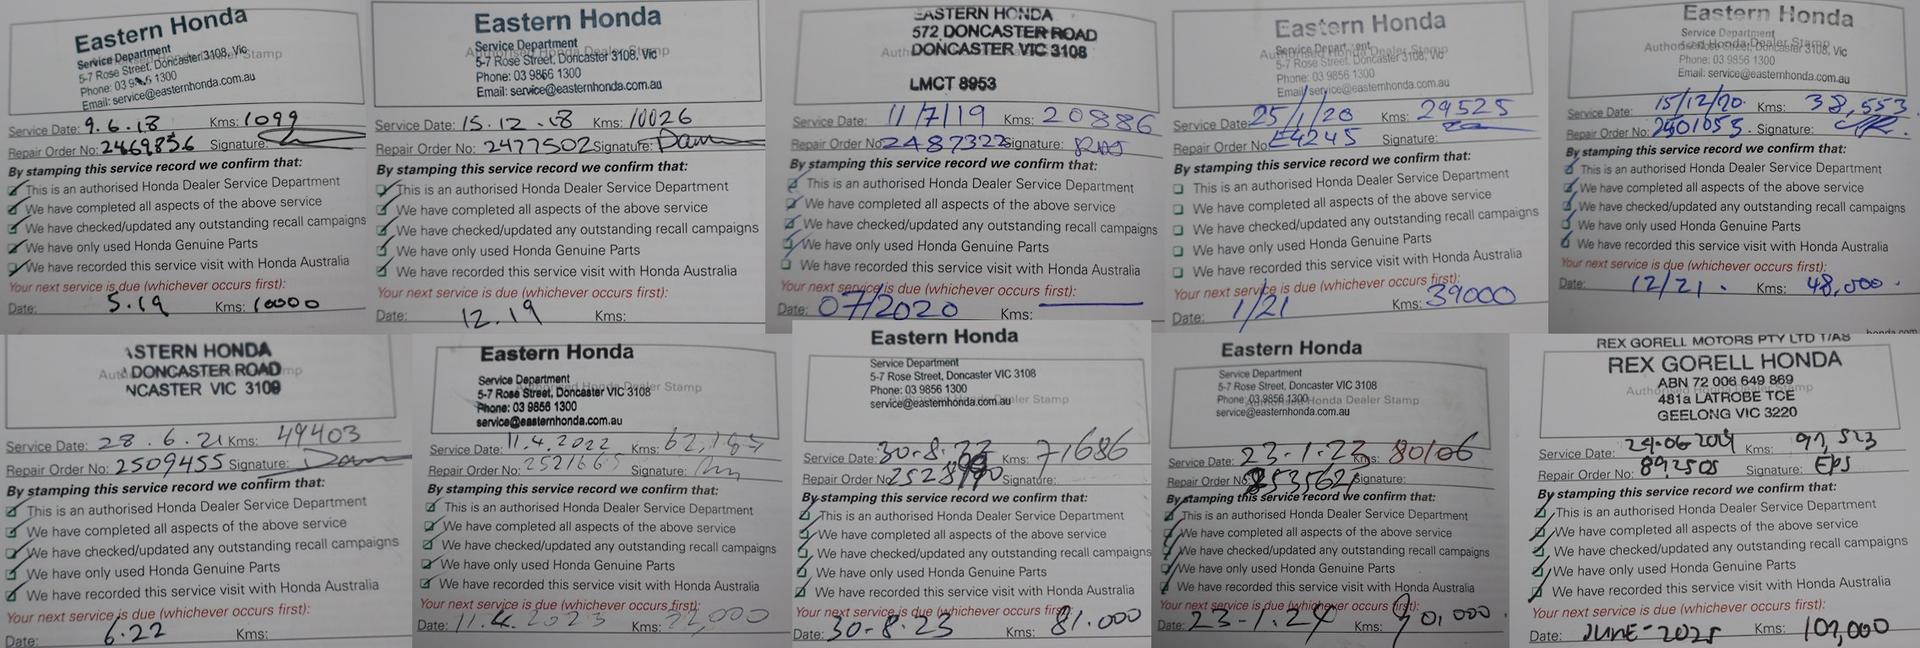 Eastern Honda
Service Department
Authorised Honda Dealer Stamp
5-7 Rose Street, Doncaster 3108, Vic
Phone: 03 9856 1300
Email: service@easternhonda.com.au
Service Date: 9.6.18 Kms: 1099
Repair Order No: 2469856 Signature:
By stamping this service record we confirm that:
This is an authorised Honda Dealer Service Department
We have completed all aspects of the above service
We have checked/updated any outstanding recall campaigns
We have only used Honda Genuine Parts
We have recorded this service visit with Honda Australia
Your next service is due (whichever occurs first):
Date: 5.19 Kms: 10000
Eastern Honda
Service Department
Authorised Honda Dealer Stamp
5-7 Rose Street, Doncaster 3108, Vic
Phone: 03 9856 1300
Email: service@easternhonda.com.au
Service Date: 15.12.18 Kms: 10026
Repair Order No: 2477502 Signature: Dam
By stamping this service record we confirm that:
This is an authorised Honda Dealer Service Department
We have completed all aspects of the above service
We have checked/updated any outstanding recall campaigns
We have only used Honda Genuine Parts
We have recorded this service visit with Honda Australia
Your next service is due (whichever occurs first):
Date: 12.19 Kms:
EASTERN HONDA
572 DONCASTER ROAD
DONCASTER VIC 3108
LMCT 8953
Service Date: 11/7/19 Kms: 20886
Repair Order No: 2487322 Signature:
By stamping this service record we confirm that:
This is an authorised Honda Dealer Service Department
We have completed all aspects of the above service
We have checked/updated any outstanding recall campaigns
We have only used Honda Genuine Parts
We have recorded this service visit with Honda Australia
Your next service is due (whichever occurs first):
Date: 07/2020 Kms:
Eastern Honda
Service Department
Authorised Honda Dealer Stamp
5-7 Rose Street, Doncaster 3108, Vic
Phone: 03 9856 1300
Email: service@easternhonda.com.au
Service Date: 25/1/20 Kms: 29525
Repair Order No: E4245 Signature:
By stamping this service record we confirm that:
This is an authorised Honda Dealer Service Department
We have completed all aspects of the above service
We have checked/updated any outstanding recall campaigns
We have only used Honda Genuine Parts
We have recorded this service visit with Honda Australia
Your next service is due (whichever occurs first):
Date: 1/21 Kms: 39000
Eastern Honda
Service Department
Authorised Honda Dealer Stamp
5-7 Rose Street, Doncaster 3108, Vic
Phone: 03 9856 1300
Email: service@easternhonda.com.au
Service Date: 15/12/20. Kms: 38,553
Repair Order No: 2501053. Signature:
By stamping this service record we confirm that:
This is an authorised Honda Dealer Service Department
We have completed all aspects of the above service
We have checked/updated any outstanding recall campaigns
We have only used Honda Genuine Parts
We have recorded this service visit with Honda Australia
Your next service is due (whichever occurs first):
Date: 12/21. Kms: 48,000.
honda.com
ASTERN HONDA
DONCASTER ROAD
NCASTER VIC 3108
Service Date: 28.6.21 Kms: 49403
Repair Order No: 2509455 Signature: Dam
By stamping this service record we confirm that:
This is an authorised Honda Dealer Service Department
We have completed all aspects of the above service
We have checked/updated any outstanding recall campaigns
We have only used Honda Genuine Parts
We have recorded this service visit with Honda Australia
Your next service is due (whichever occurs first):
Date: 6.22 Kms:
Eastern Honda
Service Department
Authorised Honda Dealer Stamp
5-7 Rose Street, Doncaster VIC 3108
Phone: 03 9856 1300
service@easternhonda.com.au
Service Date: 11.4.2022 Kms:
Repair Order No: 2521665 Signature:
By stamping this service record we confirm that:
This is an authorised Honda Dealer Service Department
We have completed all aspects of the above service
We have checked/updated any outstanding recall campaigns
We have only used Honda Genuine Parts
We have recorded this service visit with Honda Australia
Your next service is due (whichever occurs first):
Date: 11.4.2023 Kms:
Eastern Honda
Service Department
5-7 Rose Street, Doncaster VIC 3108
Phone: 03 9856 1300
Authorised Honda Dealer Stamp
service@easternhonda.com.au
Service Date: 30-8-22 Kms: 71686
Repair Order No: Signature:
By stamping this service record we confirm that:
This is an authorised Honda Dealer Service Department
We have completed all aspects of the above service
We have checked/updated any outstanding recall campaigns
We have only used Honda Genuine Parts
We have recorded this service visit with Honda Australia
Your next service is due (whichever occurs first):
Date: 30-8-23 Kms: 81.000
Eastern Honda
Service Department
5-7 Rose Street, Doncaster VIC 3108
Phone: 03 9856 1300
Authorised Honda Dealer Stamp
service@easternhonda.com.au
Service Date: 23-1-23 Kms: 80106
Repair Order No: Signature:
By stamping this service record we confirm that:
This is an authorised Honda Dealer Service Department
We have completed all aspects of the above service
We have checked/updated any outstanding recall campaigns
We have only used Honda Genuine Parts
We have recorded this service visit with Honda Australia
Your next service is due (whichever occurs first):
Date: 23-1-24 Kms: 90,000
REX GORELL MOTORS PTY LTD T/AS
REX GORELL HONDA
ABN 72 006 649 869
Authorised Honda Dealer Stamp
481a LATROBE TCE
GEELONG VIC 3220
Service Date: 24-06-2024 Kms: 97,523
Repair Order No: 892505 Signature: EPS
By stamping this service record we confirm that:
This is an authorised Honda Dealer Service Department
We have completed all aspects of the above service
We have checked/updated any outstanding recall campaigns
We have only used Honda Genuine Parts
We have recorded this service visit with Honda Australia
Your next service is due (whichever occurs first):
Date: JUNE-2025 Kms: 107,000